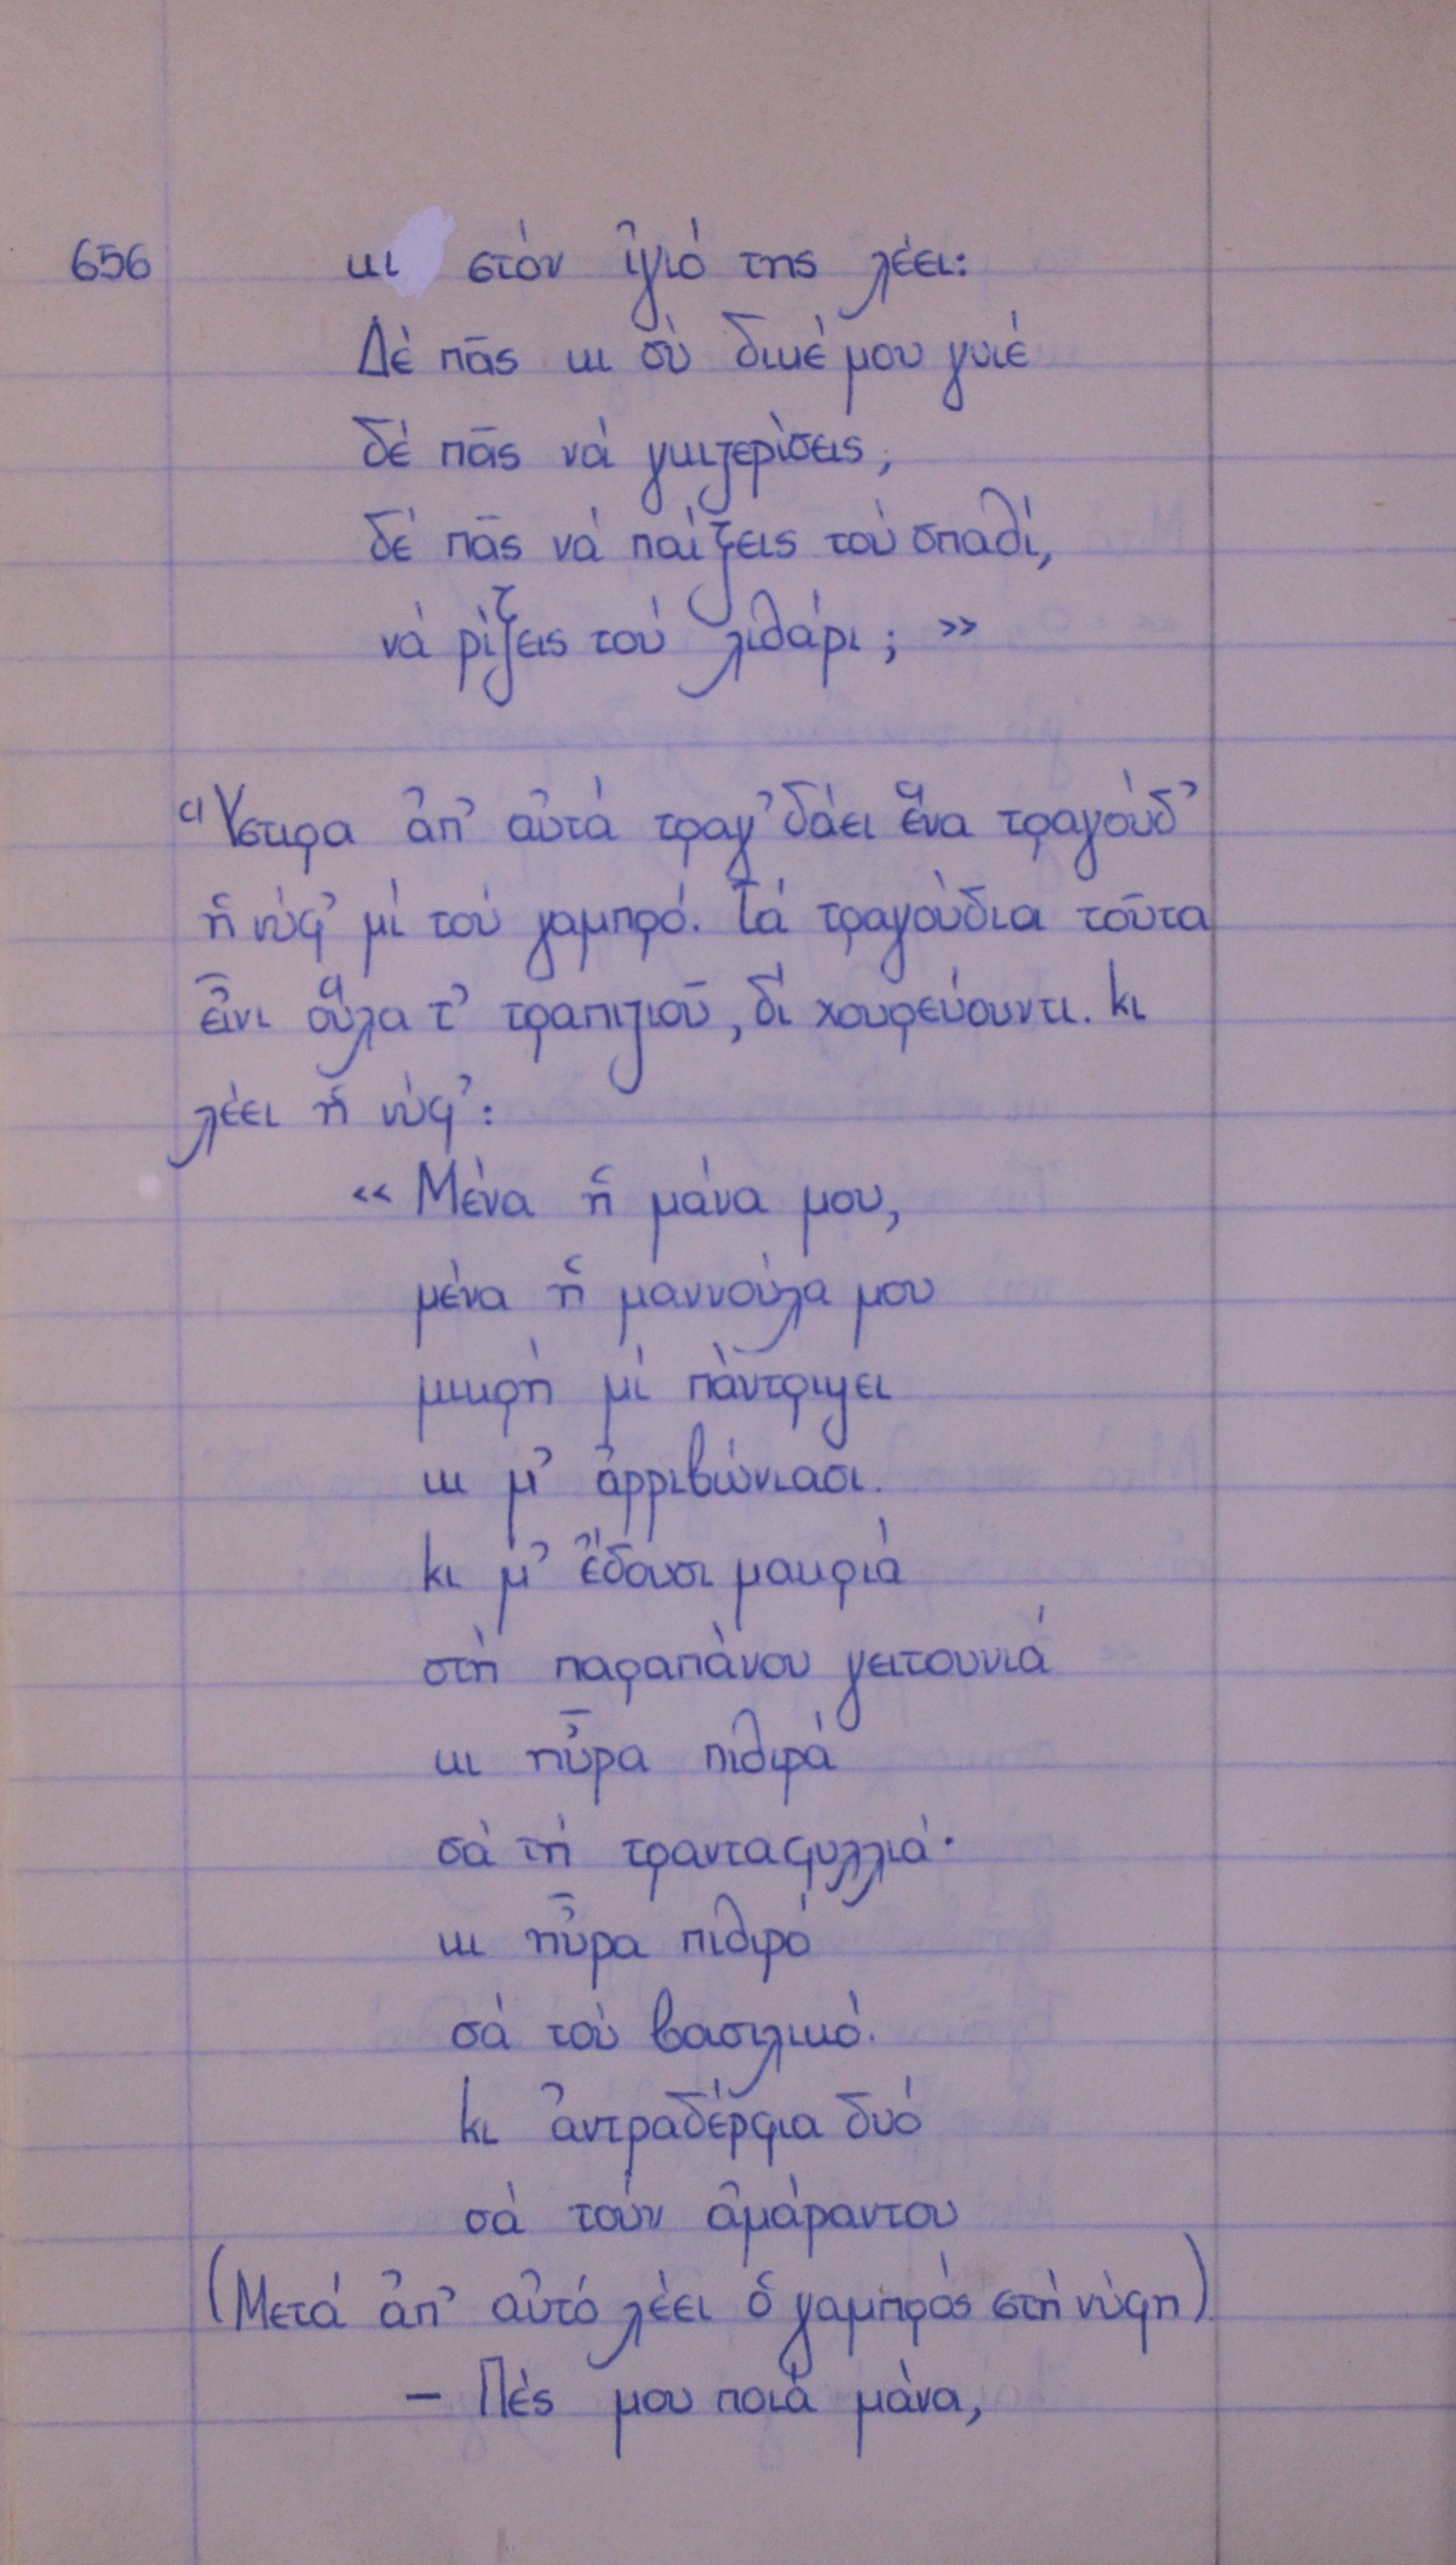 656 κι στόν ἰγιό της λέει:
Δέ πᾶς κι σύ δικέ μου γυιέ
δέ πᾶς νά γκιζερίσεις,
δέ πᾶς νά παίξεις τού σπαθί,
νά ρίξεις τού λιθάρι; »
Ὕστιρα ἀπ' αὐτά τραγ'δάει ἕνα τραγούδ'
ἡ νύφ' μί τού γαμπρό. Τά τραγούδια τοῦτα
εἶνι οὕλα τ' τραπιζιοῦ, δί χουρεύουντι. Κι
λέει ἡ νύφ':
« Μένα ἡ μάνα μου,
μένα ἡ μαννούλα μου
μικρή μί πάντριψει
κι μ' ἀρριβώνιασι.
Κι μ' ἔδουσι μακριά
στή παραπάνου γειτουνιά
κι ηὖρα πιθιρά
σά τή τρανταφυλλιά·
κι ηὖρα πιθιρό
σά τού βασιλικό.
Κι ἀντραδέρφια δυό
σά τούν ἀμάραντου
(Μετά ἀπ' αὐτό λέει ὁ γαμπρός στή νύφη)
– Πές μου ποιά μάνα,